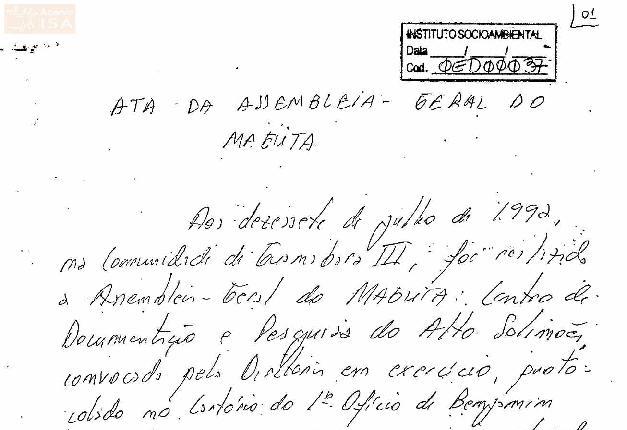 Acervo
ISA
01
INSTITUTO SOCIOAMBIENTAL
Data / /
Cod. ØED00037
ATA DA ASSEMBLEIA - GERAL DO
MAGUTA
Aos dezessete de julho de 1992,
na Comunidade de III, foi realizada
a Assembleia-Geral do MAGUTA: Centro de
Documentação e Pesquisa do Alto Solimões,
convocada pela Diretoria em exercício, proto-
colado no Cartório do 1º Ofício de Benjamim